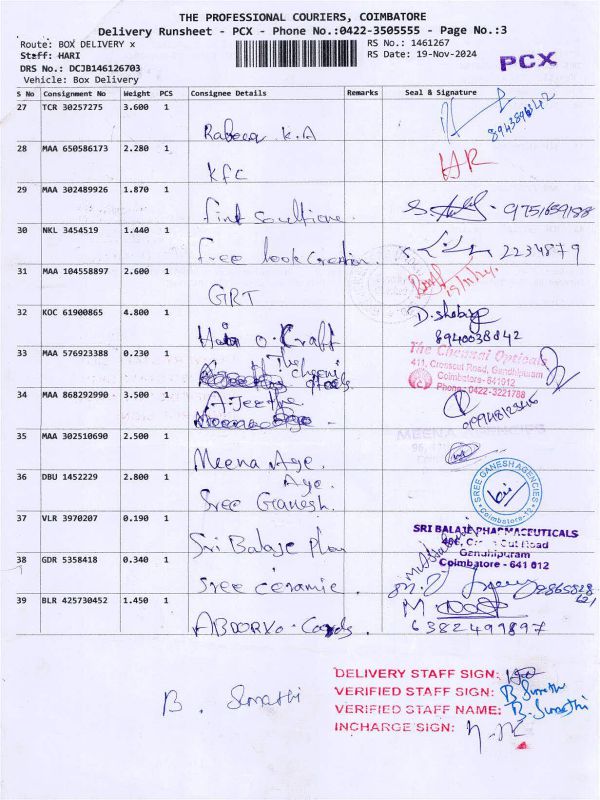 THE PROFESSIONAL COURIERS, COIMBATORE
Delivery Runsheet - PCX - Phone No.:0422-3505555 - Page No.:3
Route: BOX DELIVERY x
RS No.: 1461267
Staff: HARI
RS Date: 19-Nov-2024
PCX
DRS No.: DCJB146126703
Vehicle: Box Delivery
S No Consignment No Weight PCS Consignee Details Remarks Seal & Signature
27 TCR 30257275 3.600 1
Rabeca K.A
8943896342
28 MAA 650586173 2.280 1
KFC
29 MAA 302489926 1.870 1
9751659188
30 NKL 3454519 1.440 1
free look creation.
2234879
31 MAA 104558897 2.600 1
GRT
19/11/24
32 KOC 61900865 4.800 1
O. Craft
D. Shebiya
8940038842
33 MAA 576923388 0.230 1
The Chennai Opticals
411, Crosscut Road, Gandhipuram
Coimbatore - 641012
Phone: 0422-3221788
34 MAA 868292990 3.500 1
A. Jeetha
35 MAA 302510690 2.500 1
Meena Age.
36 DBU 1452229 2.800 1
Age.
Sree Ganesh.
SREE GANESH AGENCIES
Coimbatore-12
37 VLR 3970207 0.190 1
Sri Balaje
SRI BALAJE PHARMACEUTICALS
Cut Road
Gandhipuram
Coimbatore - 641 012
38 GDR 5358418 0.340 1
Sree ceramic
39 BLR 425730452 1.450 1
M
6382499897
DELIVERY STAFF SIGN:
VERIFIED STAFF SIGN: B. Sumathi
VERIFIED STAFF NAME: B. Sumathi
INCHARGE SIGN:
B. Sumathi